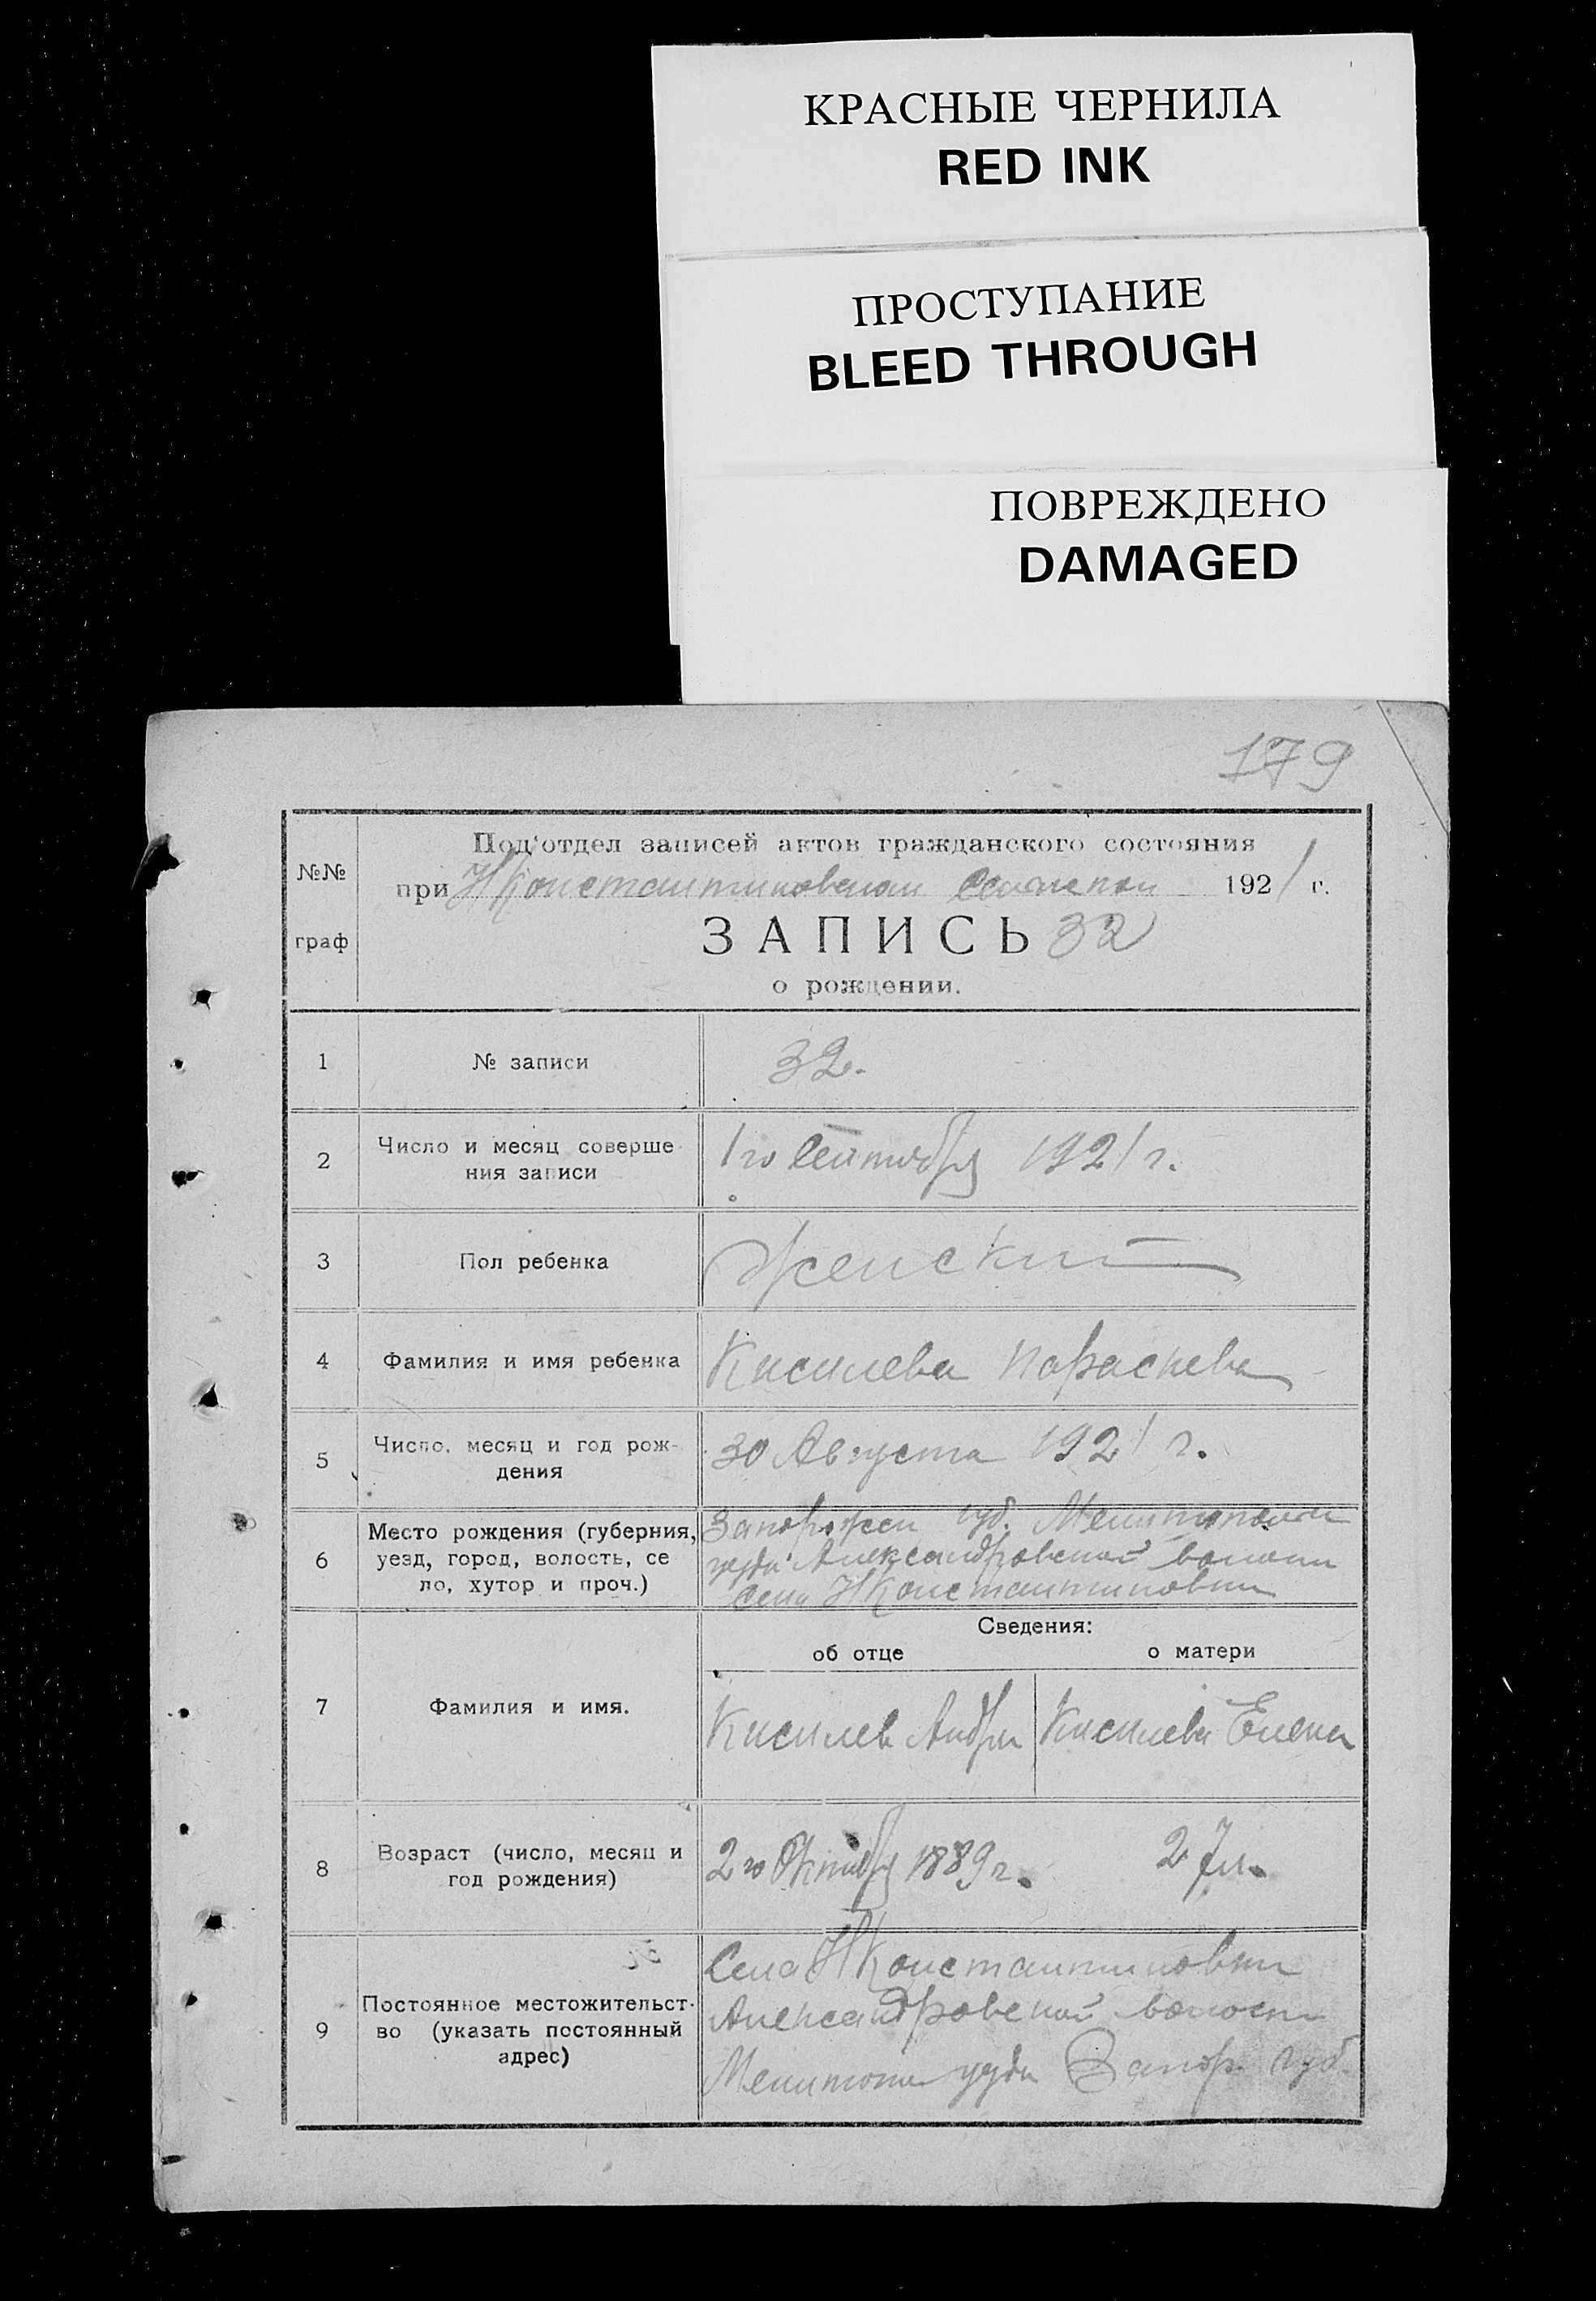 КРАСНЫЕ ЧЕРНИЛА
RED INK
ПРОСТУПАНИЕ
BLEED THROUGH
ПОВРЕЖДЕНО
DAMAGED
179
№№ граф
Под'отдел записей актов гражданского состояния
при НКонстантиновском 1921 г.
ЗАПИСЬ 32
о рождении.
1 № записи 32.
2 Число и месяц соверше
ния записи
1го Сентября 1921 г.
3 Пол ребенка Женский
4 Фамилия и имя ребенка Кисилева Параскева
5 Число, месяц и год рож-
дения
30 Августа 1921 г.
6 Место рождения (губерния,
уезд, город, волость, се
ло, хутор и проч.)
Запорожск губ. Мелитопольск
уезда Александровской волости
Села НКонстантиновки
Сведения:
об отце о матери
7 Фамилия и имя.
Кисилев Андрей Кисилева Елена
8 Возраст (число, месяц и
год рождения)
2го Октября 1889 г. 27 л.
9 Постоянное местожительст-
во (указать постоянный
адрес)
Села НКонстантиновки
Александровской волости
Мелитопол уезда Запор. губ.